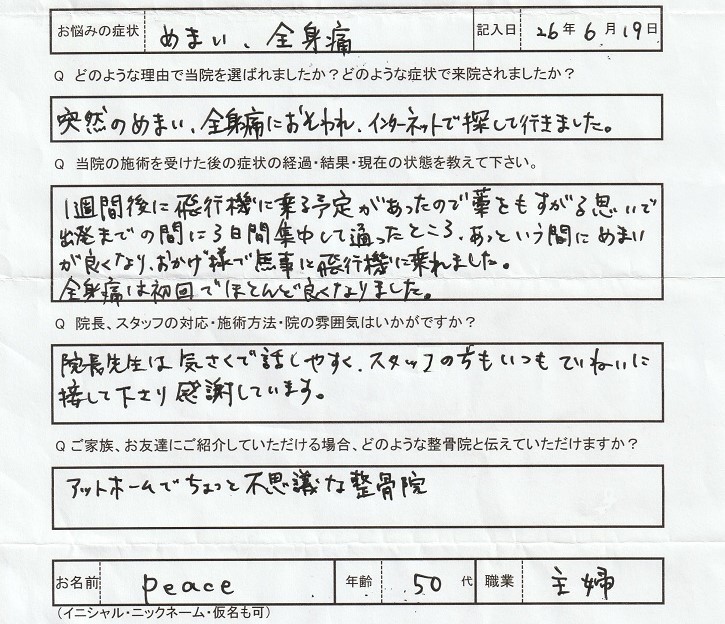 お悩みの症状 めまい、全身痛 記入日 26年6月19日
Q どのような理由で当院を選ばれましたか？どのような症状で来院されましたか？
突然のめまい、全身痛におそわれ、インターネットで探して行きました。
Q 当院の施術を受けた後の症状の経過・結果・現在の状態を教えて下さい。
1週間後に飛行機に乗る予定があったので藁をもすがる思いで
出発までの間に3日間集中して通ったところ、あっという間にめまい
が良くなり、おかげ様で無事に飛行機に乗れました。
全身痛は初回でほとんど良くなりました。
Q 院長、スタッフの対応・施術方法・院の雰囲気はいかがですか？
院長先生は気さくで話しやすく、スタッフの方もいつもていねいに
接して下さり感謝しています。
Q ご家族、お友達にご紹介していただける場合、どのような整骨院と伝えていただけますか？
アットホームでちょっと不思議な整骨院
お名前 peace 年齢 50代 職業 主婦
（イニシャル・ニックネーム・仮名も可）